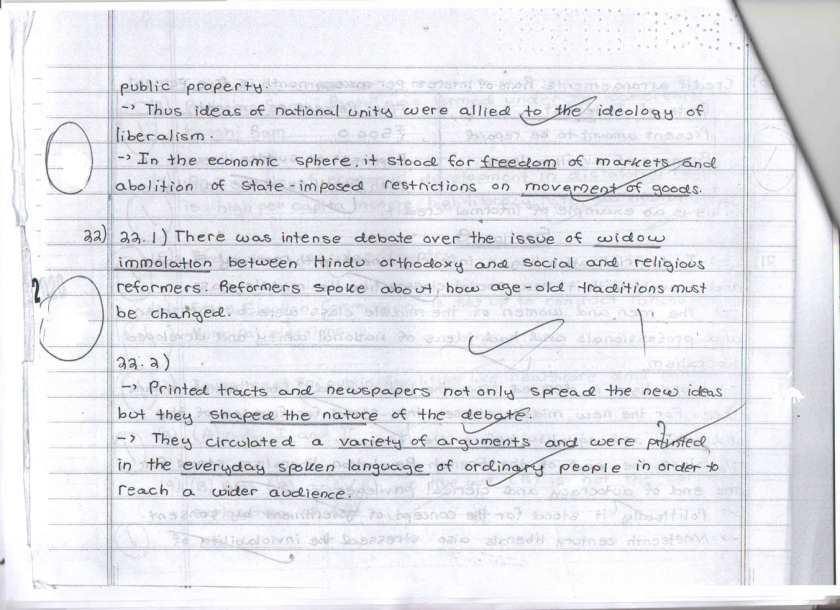 public property.
-> Thus ideas of national unity were allied to the ideology of
liberalism.
-> In the economic sphere, it stood for freedom of markets and
abolition of state-imposed restrictions on movement of goods.
22) 22.1) There was intense debate over the issue of widow
immolation between Hindu orthodoxy and social and religious
reformers. Reformers spoke about how age-old traditions must
be changed.
2
22.2)
-> Printed tracts and newspapers not only spread the new ideas
but they shaped the nature of the debate.
-> They circulated a variety of arguments and were printed
in the everyday spoken language of ordinary people in order to
reach a wider audience.